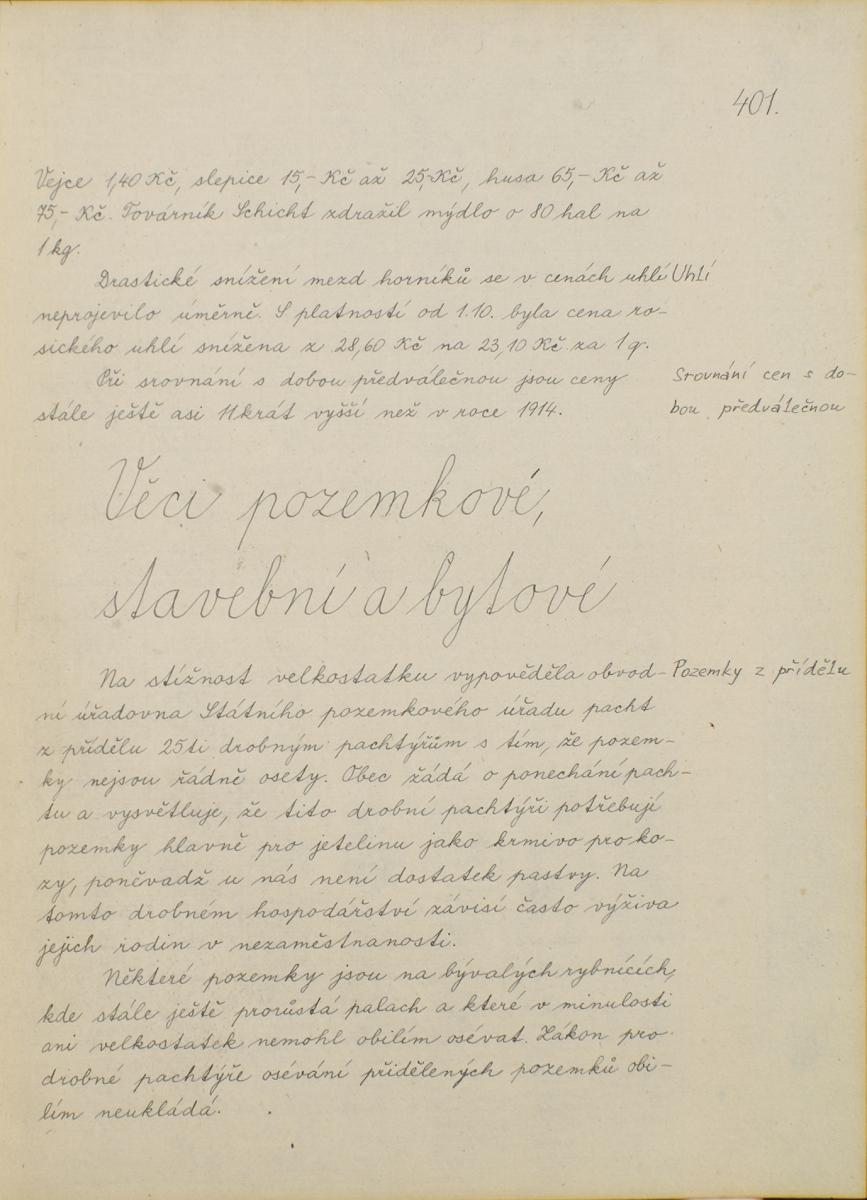 401.
Vejce 1,40 Kč, slepice 15,- Kč až 25,-Kč, husa 65,- Kč až
75,- Kč. Továrník Schicht zdražil mýdlo o 80 hal na
1 kg.
Drastické snížení mezd horníků se v cenách uhlí Uhlí
neprojevilo úměrně. S platností od 1.10. byla cena ro-
sického uhlí snížena z 28,60 Kč na 23,10 Kč za 1 q.
Při srovnání s dobou předválečnou jsou ceny Srovnání cen s do-
stále ještě asi 11krát vyšší než v roce 1914. bou předválečnou
Věci pozemkové,
stavební a bytové
Na stížnost velkostatku vypověděla obvod- Pozemky z přídělu
ní úřadovna Státního pozemkového úřadu pacht
z přídělu 25ti drobným pachtýřům s tím, že pozem-
ky nejsou řádně osety. Obec žádá o ponechání pach-
tu a vysvětluje, že tito drobní pachtýři potřebují
pozemky hlavně pro jetelinu jako krmivo pro ko-
zy, poněvadž u nás není dostatek pastvy. Na
tomto drobném hospodářství závisí často výživa
jejich rodin v nezaměstnanosti.
Některé pozemky jsou na bývalých rybnících,
kde stále ještě prorůstá palach a které v minulosti
ani velkostatek nemohl obilím osévat. Zákon pro
drobné pachtýře osévání přidělených pozemků obi-
lím neukládá.